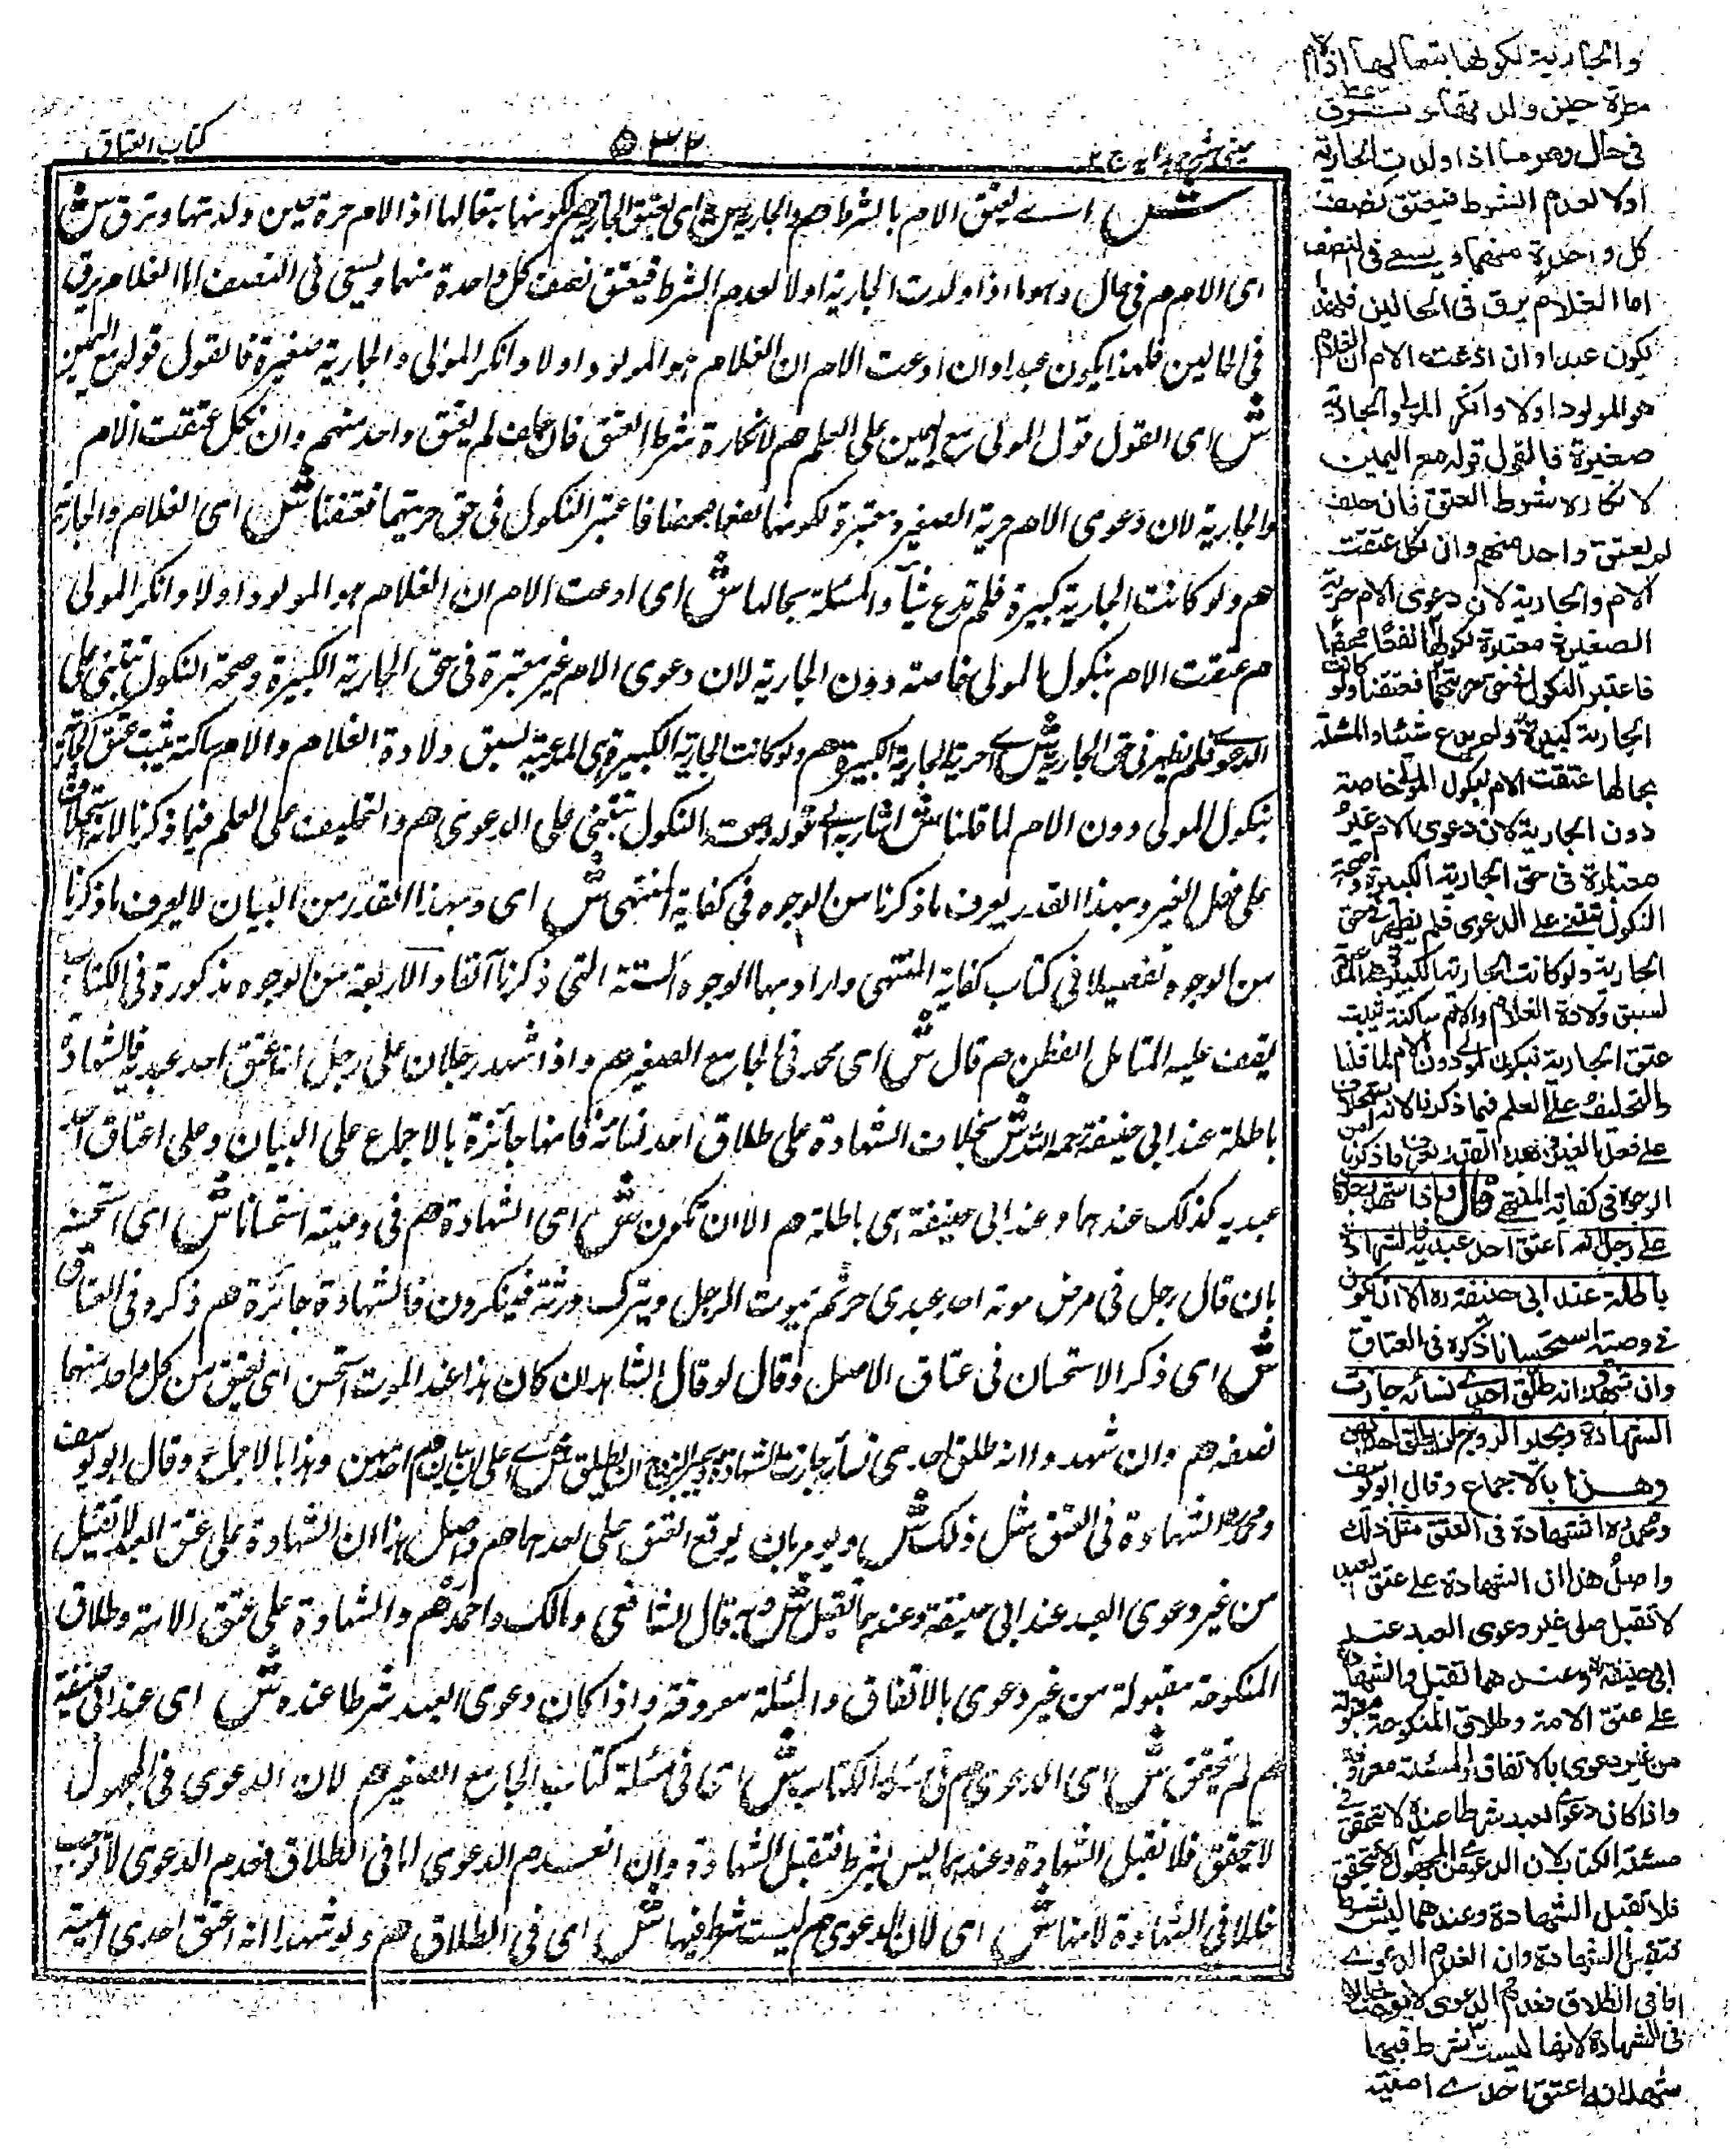 عینی شرح ہدایہ ج ۲
۵۳۲
کتاب العتاق
ش اے یعتق الام بالشرط هم والجاریة ش ای یعتق الجاریة هم لکونها تبعا لها اذ الام حرة حین ولدتها وترق ش
ای الام هم فی حال وهو ما اذا ولدت الجاریة اولا لعدم الشرط فیعتق نصف کل واحدة منهما ویسعی فی النصف اما الغلام یرق
فی الحالین فلهذا یکون عبدا وان ادعت الام ان الغلام هو المولود اولا وانکر المولی والجاریة صغیرة فالقول قوله مع الیمین
ش ای القول قول المولی مع الیمین علی العلم هم لانکاره شرط العتق فان حلف لم یعتق واحد منهم وان نکل عتقت الام
والجاریة لان دعوی الام حریة الصغیرة معتبرة لکونها نفعا محضا فاعتبر النکول فی حق حریتهما فعتقتا ش ای الغلام والجاریة
هم ولو کانت الجاریة کبیرة فلم تدع شیأ والمسئلة بحالها ش ای ادعت الام ان الغلام هو المولود اولا وانکر المولی
هم عتقت الام بنکول المولی خاصة دون الجاریة لان دعوی الام غیر معتبرة فی حق الجاریة الکبیرة وصحة النکول تبتنی علی
الدعوی فلم یظهر فی حق الجاریة ش اے حریة الجاریة الکبیرة هم ولو کانت الجاریة الکبیرة هی المدعیة لسبق ولادة الغلام والام ساکتة یثبت عتق الجاریة
بنکول المولی دون الام لما قلنا ش اشار به الی قوله وصحة النکول تبتنی علی الدعوی هم والتحلیف علی العلم فیما ذکرنا لانه استحلاف
علی فعل الغیر وبهذا القدر یعرف ما ذکرنا من الوجوه فی کفایة المنتهی ش ای وبهذا القدر من البیان لا یعرف ما ذکرنا
من الوجوه تفصیلا فی کتاب کفایة المنتهی واراد بها الوجوه الستة التی ذکرنا آنفا والاربعة من الوجوه مذکورة فی الکتاب
یقف علیه المتامل الفطن هم قال ش ای محمد فی الجامع الصغیر هم واذا شهد رجلان علی رجل انه اعتق احد عبدیه فالشهادة
باطلة عند ابی حنیفة رحمه الله ش بخلاف الشهادة علی طلاق احد نسائه فانها جائزة بالاجماع علی البیان وعلی اعتاق احد
عبدیه کذلک عندهما وعند ابی حنیفة هی باطلة هم الا ان تکون ش ای الشهادة هم فی وصیة استحسانا ش ای استحسنه
بان قال رجل فی مرض موته احد عبدی حر ثم یموت الرجل ویترک ورثة فینکرون فالشهادة جائزة هم ذکره فی العتاق
ش ای ذکر الاستحسان فی عتاق الاصل وقال لو قال الشاهدان کان هذا عند الموت استحسن ای یعتق من کل واحد منهما
نصفه هم وان شهدوا انه طلق احدی نسائه جازت الشهادة ویجبر الزوج ان یطلق ش اے علی ان یبین هم احدیهن وهذا بالاجماع وقال ابو یوسف
ومحمد الشهادة فی العتق مثل ذلک ش ویؤمر بان یوقع العتق علی احدهما هم واصل هذا ان الشهادة علی عتق العبد لا تقبل
من غیر دعوی العبد عند ابی حنیفة وعندهما تقبل ش وبه قال الشافعی ومالک واحمد هم والشهادة علی عتق الامة وطلاق
المنکوحة مقبولة من غیر دعوی بالاتفاق والمسئلة معروفة واذا کان دعوی العبد شرطا عنده ش ای عند ابی حنیفة
هم لم یتحقق ش ای الدعوی هم فی مسئلة الکتاب ش ای فی مسئلة کتاب الجامع الصغیر هم لان الدعوی فی المجهول
لا یتحقق فلا تقبل الشهادة وعندهما لیس بشرط فتقبل الشهادة وان انعدم الدعوی اما فی الطلاق فعدم الدعوی لا توجب
خللا فی الشهادة لانها ش ای لان الدعوی هم لیست شرط فیها ش ای فی الطلاق هم ولو شهدا انه اعتق احدی امتیه
والجاریة لکونها تبعا لها اذ الام
حرة حین ولدتها وترق
فی حال وهو ما اذا ولدت الجاریة
اولا لعدم الشرط فیعتق نصف
کل واحدة منهما ویسعی فی النصف
اما الغلام یرق فی الحالین فلهذا
یکون عبدا وان ادعت الام ان الغلام
هو المولود اولا وانکر المولی والجاریة
صغیرة فالقول قوله مع الیمین
لانکاره شرط العتق فان حلف
لم یعتق واحد منهم وان نکل عتقت
الام والجاریة لان دعوی الام حریة
الصغیرة معتبرة لکونها نفعا محضا
فاعتبر النکول فی حق حریتهما فعتقتا ولو کانت
الجاریة کبیرة ولم تدع شیئا والمسئلة
بحالها عتقت الام بنکول المولی خاصة
دون الجاریة لان دعوی الام غیر
معتبرة فی حق الجاریة الکبیرة وصحة
النکول تبتنی علی الدعوی فلم یظهر فی حق
الجاریة ولو کانت الجاریة الکبیرة هی المدعیة
لسبق ولادة الغلام والام ساکتة یثبت
عتق الجاریة بنکول المولی دون الام لما قلنا
والتحلیف علی العلم فیما ذکرنا لانه استحلاف
علی فعل الغیر وبهذا القدر یعرف ما ذکرنا من
الوجوه فی کفایة المنتهی قال واذا شهد رجلان
علی رجل انه اعتق احد عبدیه فالشهادة
باطلة عند ابی حنیفة ره الا ان تکون
فی وصیة استحسانا ذکره فی العتاق
وان شهدا انه طلق احدی نسائه جازت
الشهادة ویجبر الزوج ان یطلق احدیهن
وهذا بالاجماع وقال ابو یوسف
ومحمد ره الشهادة فی العتق مثل ذلک
واصل هذا ان الشهادة علی عتق العبد
لا تقبل من غیر دعوی العبد عند
ابی حنیفة ره وعندهما تقبل والشهادة
علی عتق الامة وطلاق المنکوحة مقبولة
من غیر دعوی بالاتفاق والمسئلة معروفة
واذا کان دعوی العبد شرطا عنده لا تتحقق فی
مسئلة الکتاب لان الدعوی من المجهول لا تتحقق
فلا تقبل الشهادة وعندهما لیس بشرط
فتقبل الشهادة وان انعدم الدعوی
اما فی الطلاق فعدم الدعوی لا یوجب خللا
فی الشهادة لانها لیست بشرط فیها
شهدا انه اعتق احدی امتیه